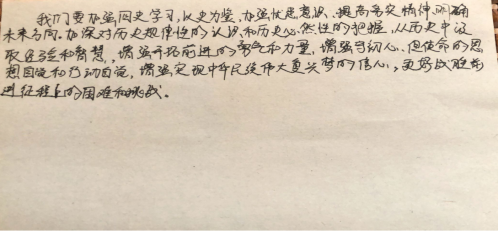 我们要加强历史学习,以史为鉴,加强忧患意识,提高务实精神,明确
未来方向。加深对历史规律性的认识和历史必然性的把握,从历史中汲
取经验和智慧,增强开拓前进的勇气和力量,增强守初心、担使命的思
想自觉和行动自觉,增强实现中华民族伟大复兴梦的信心,更好战胜前
进征程上的困难和挑战。